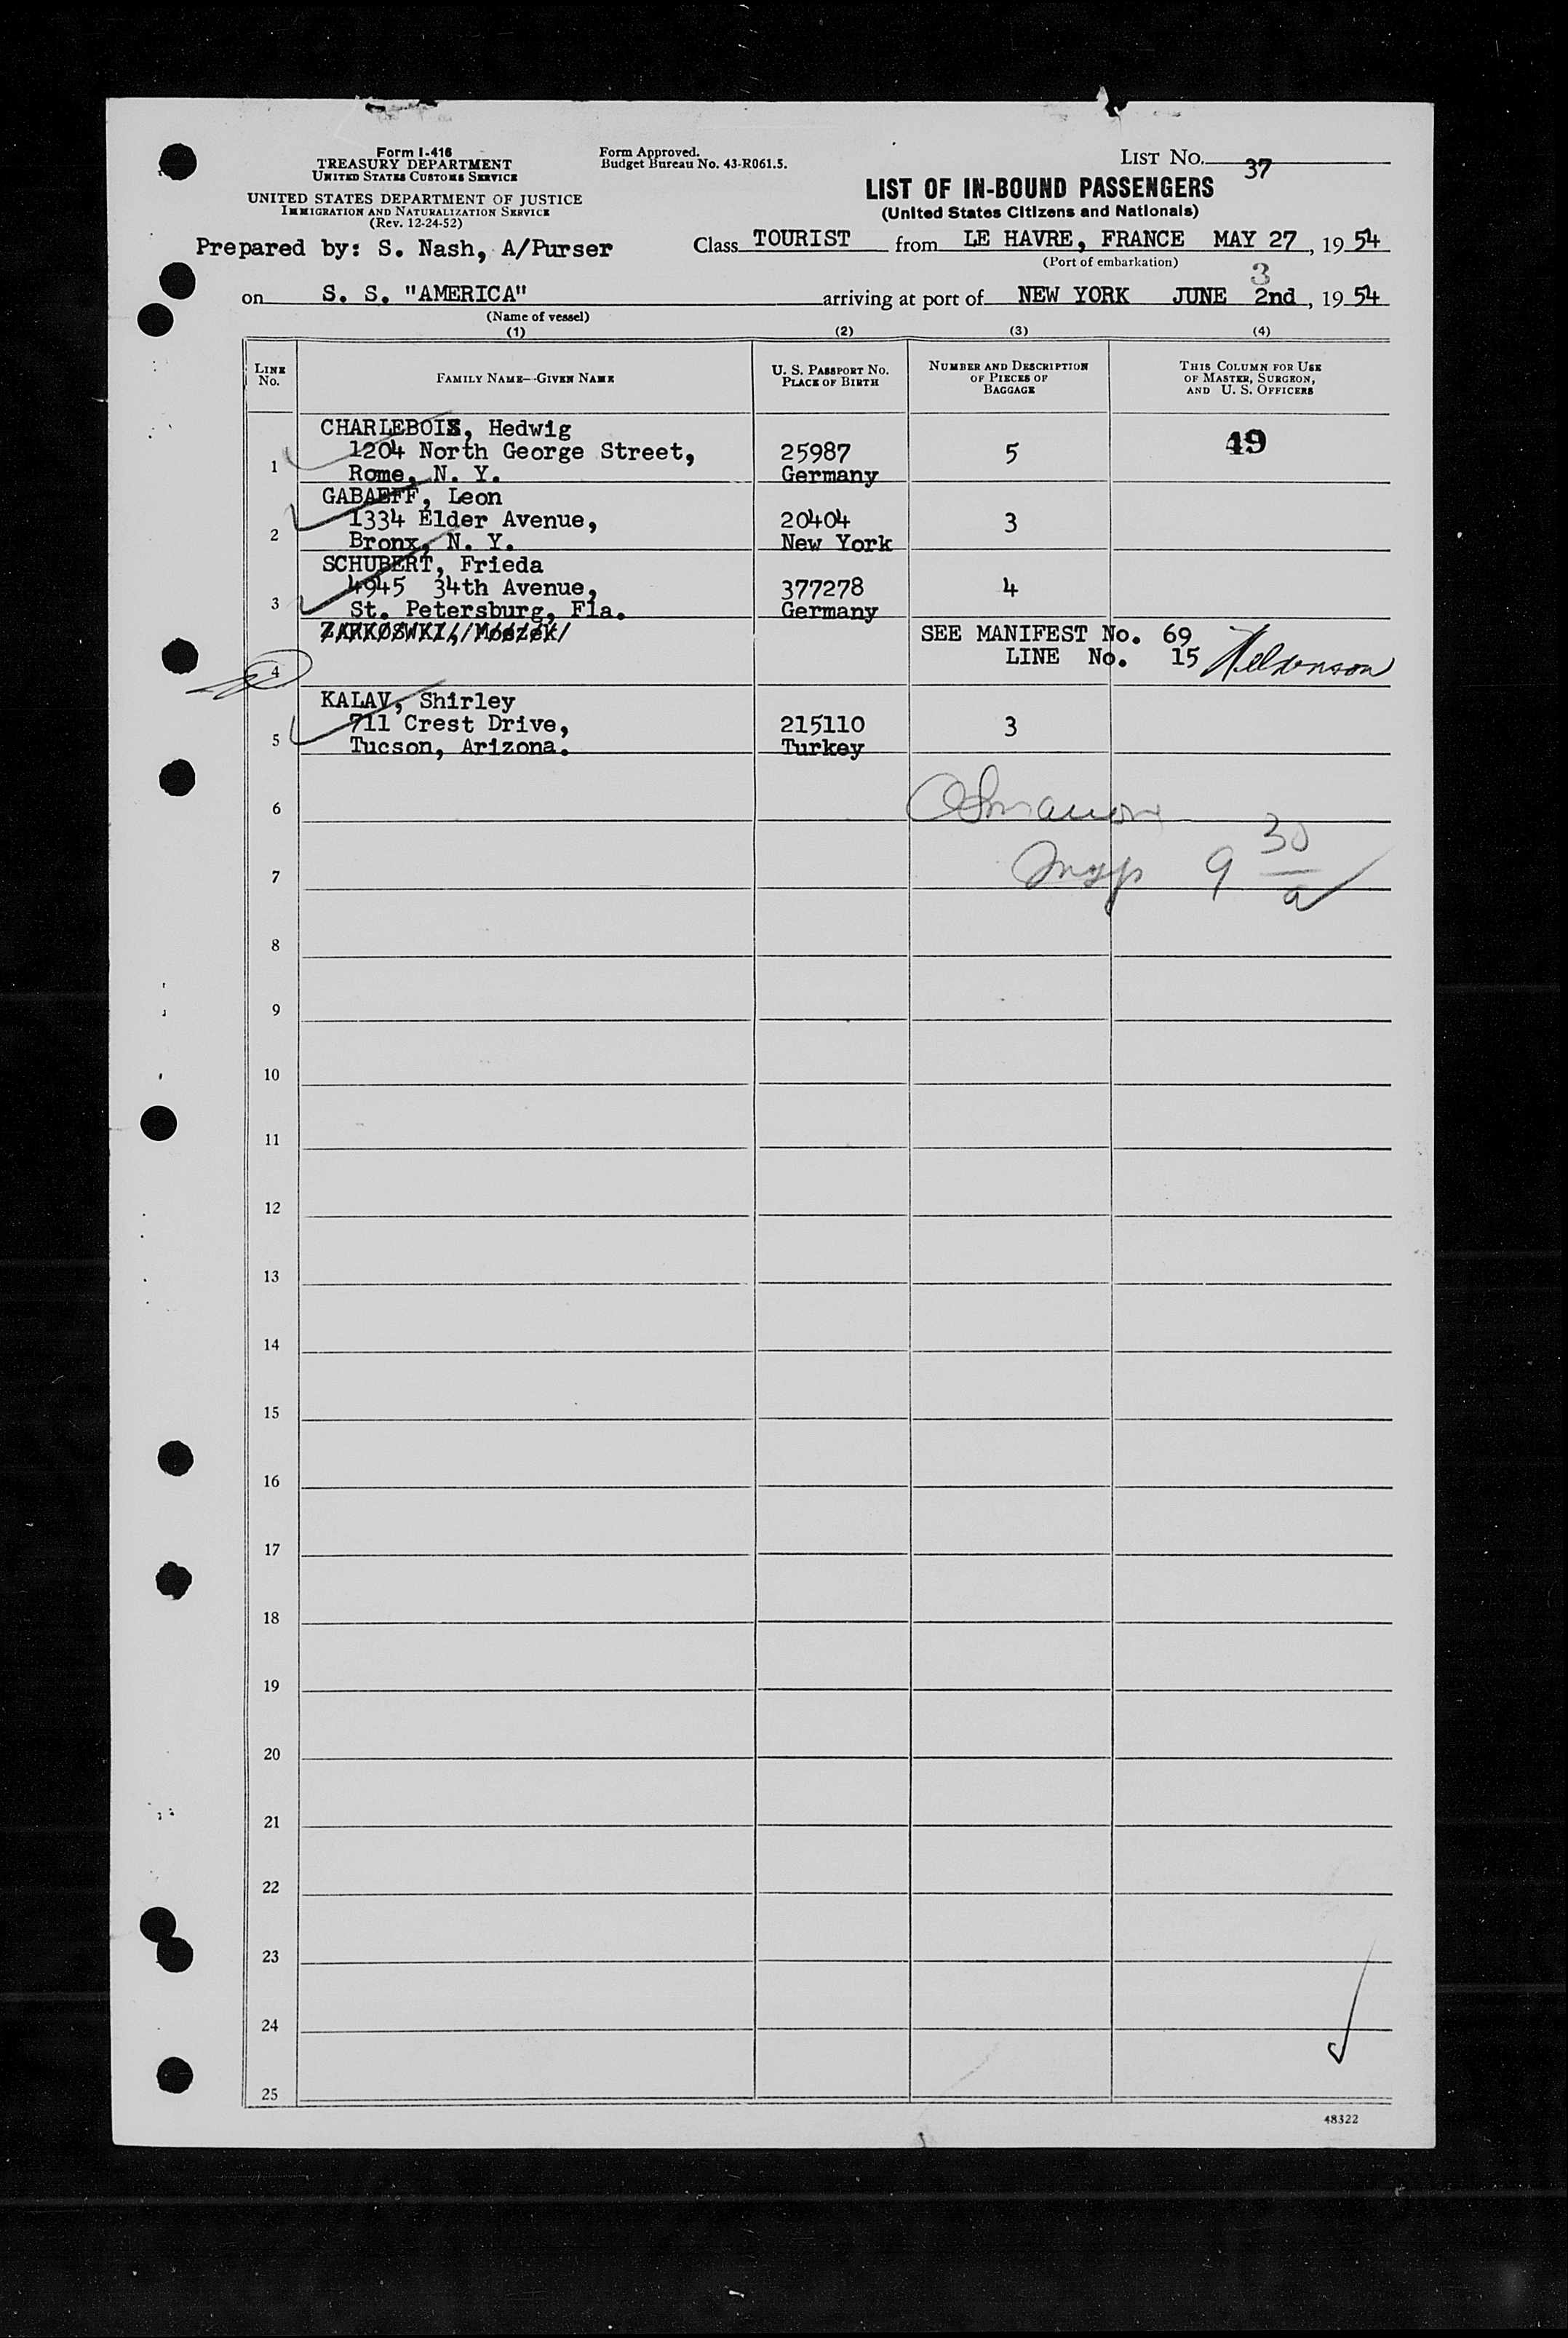 Form I-416
TREASURY DEPARTMENT
UNITED STATES CUSTOMS SERVICE
UNITED STATES DEPARTMENT OF JUSTICE
IMMIGRATION AND NATURALIZATION SERVICE
(Rev. 12-24-52)
Form Approved.
Budget Bureau No. 43-R061.5.
LIST NO. 37
LIST OF IN-BOUND PASSENGERS
(United States Citizens and Nationals)
Prepared by: S. Nash, A/Purser
Class TOURIST from LE HAVRE, FRANCE MAY 27, 1954
(Port of embarkation)
3
on S. S. "AMERICA" arriving at port of NEW YORK JUNE 2nd, 1954
(Name of vessel)
(1) (2) (3) (4)
LINE No.
FAMILY NAME—GIVEN NAME
U. S. PASSPORT NO.
PLACE OF BIRTH
NUMBER AND DESCRIPTION
OF PIECES OF
BAGGAGE
THIS COLUMN FOR USE
OF MASTER, SURGEON,
AND U. S. OFFICERS
CHARLEBOIS, Hedwig 49
1 1204 North George Street, 25987 5
Rome, N. Y. Germany
GABAEFF, Leon
2 1334 Elder Avenue, 20404 3
Bronx, N. Y. New York
SCHUBERT, Frieda
3 4945 34th Avenue, 377278 4
St. Petersburg, Fla. Germany
ZARKOSWKI, Moszek SEE MANIFEST No. 69
4 LINE No. 15
KALAV, Shirley
5 711 Crest Drive, 215110 3
Tucson, Arizona. Turkey
6
7 9 30
a
8
9
10
11
12
13
14
15
16
17
18
19
20
21
22
23
24
25
48322